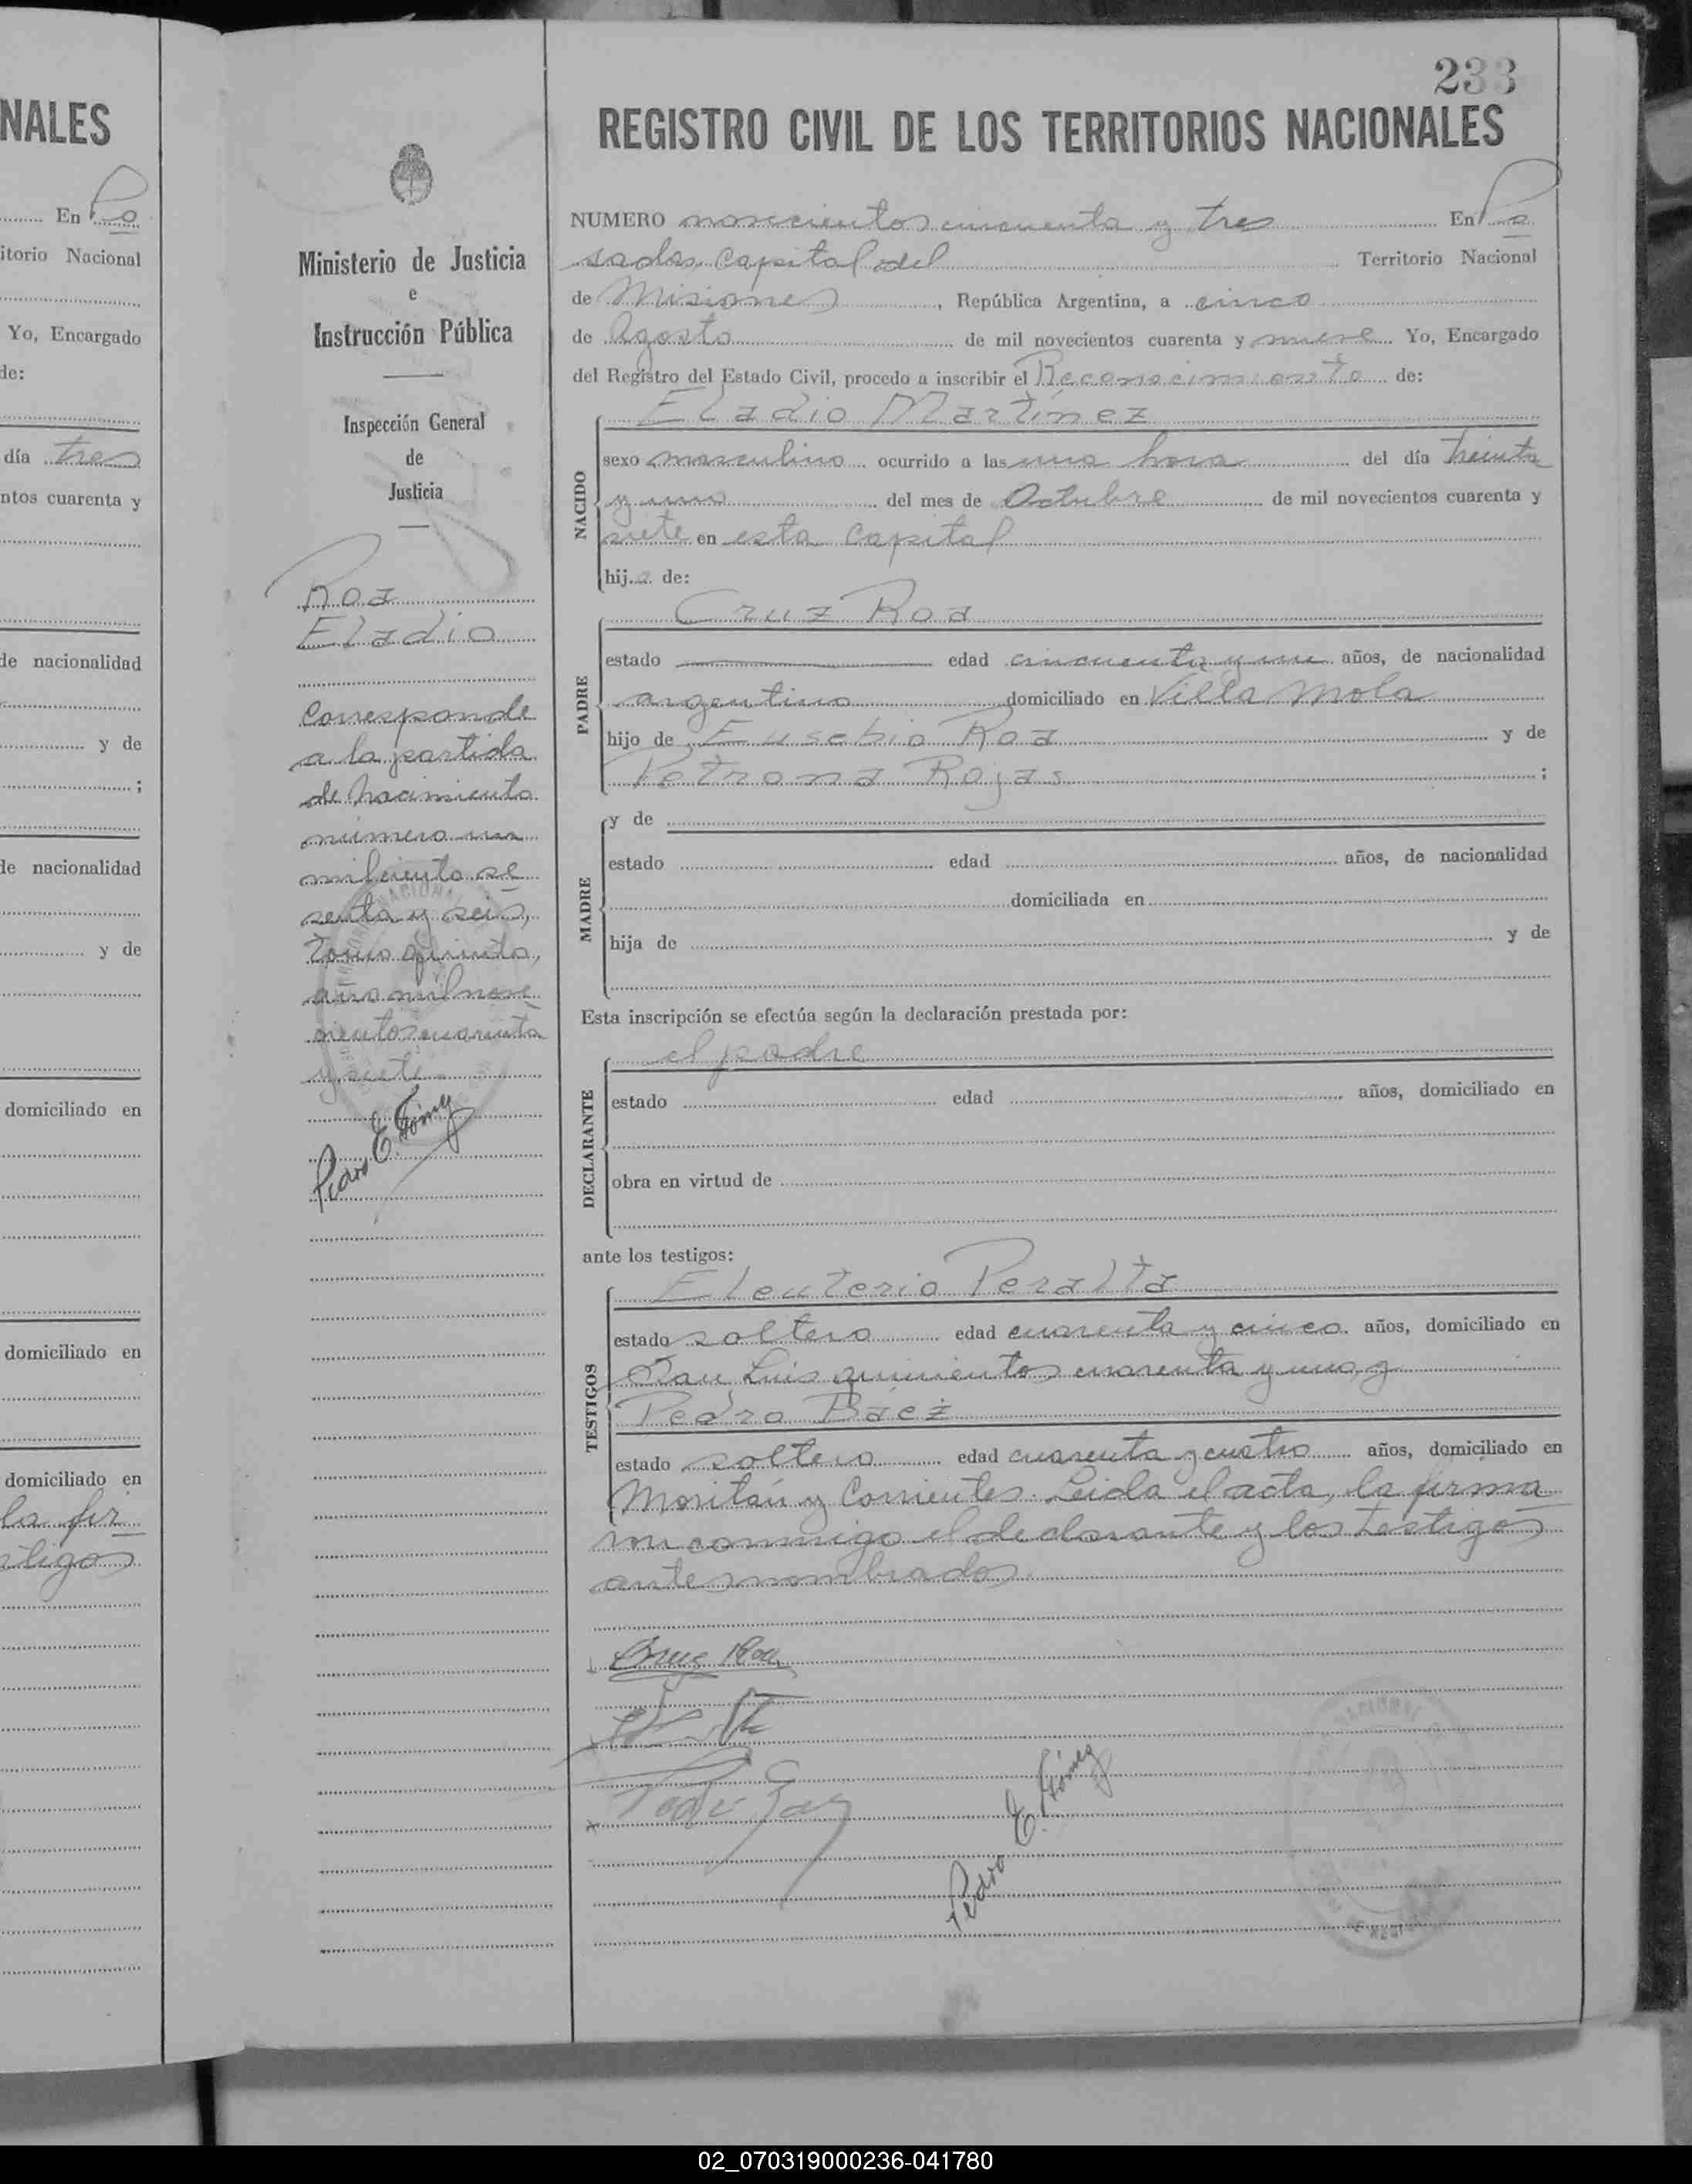 NALES
En Po
itorio Nacional
Yo, Encargado
de:
día tres
ntos cuarenta y
de nacionalidad
y de
;
de nacionalidad
y de
domiciliado en
domiciliado en
domiciliado en
la fir
stigos
Ministerio de Justicia
e
Instrucción Pública
Inspección General
de
Justicia
Roa
Eladio
Corresponde
a la partida
de nacimiento
número un
mil ciento se
senta y seis,
tomo quinto,
año mil nove
cientos cuarenta
y siete
Pedro E. Gómez
233
REGISTRO CIVIL DE LOS TERRITORIOS NACIONALES
NUMERO novecientos cincuenta y tres En Po
sadas, capital del Territorio Nacional
de Misiones, República Argentina, a cinco
de Agosto de mil novecientos cuarenta y nueve Yo, Encargado
del Registro del Estado Civil, procedo a inscribir el Reconocimiento de:
Eladio Martínez
NACIDO
sexo masculino ocurrido a las una hora del día treinta
y uno del mes de Octubre de mil novecientos cuarenta y
siete en esta capital
hijo de:
Cruz Roa
PADRE
estado edad cincuenta y un años, de nacionalidad
argentino domiciliado en Villa Mola
hijo de Eusebio Roa y de
Petrona Rojas ;
MADRE
y de
estado edad años, de nacionalidad
domiciliada en
hija de y de
Esta inscripción se efectúa según la declaración prestada por:
el padre
DECLARANTE
estado edad años, domiciliado en
obra en virtud de
ante los testigos:
Eleuterio Peralta
TESTIGOS
estado soltero edad cuarenta y cinco años, domiciliado en
San Luis quinientos cuarenta y uno, y
Pedro Báez
estado soltero edad cuarenta y cuatro años, domiciliado en
Moritán y Corrientes. Leida el acta, la firma
n conmigo el declarante y los testigos
antes nombrados.
Cruz Roa
Pedro E. Gómez
02_070319000236-041780